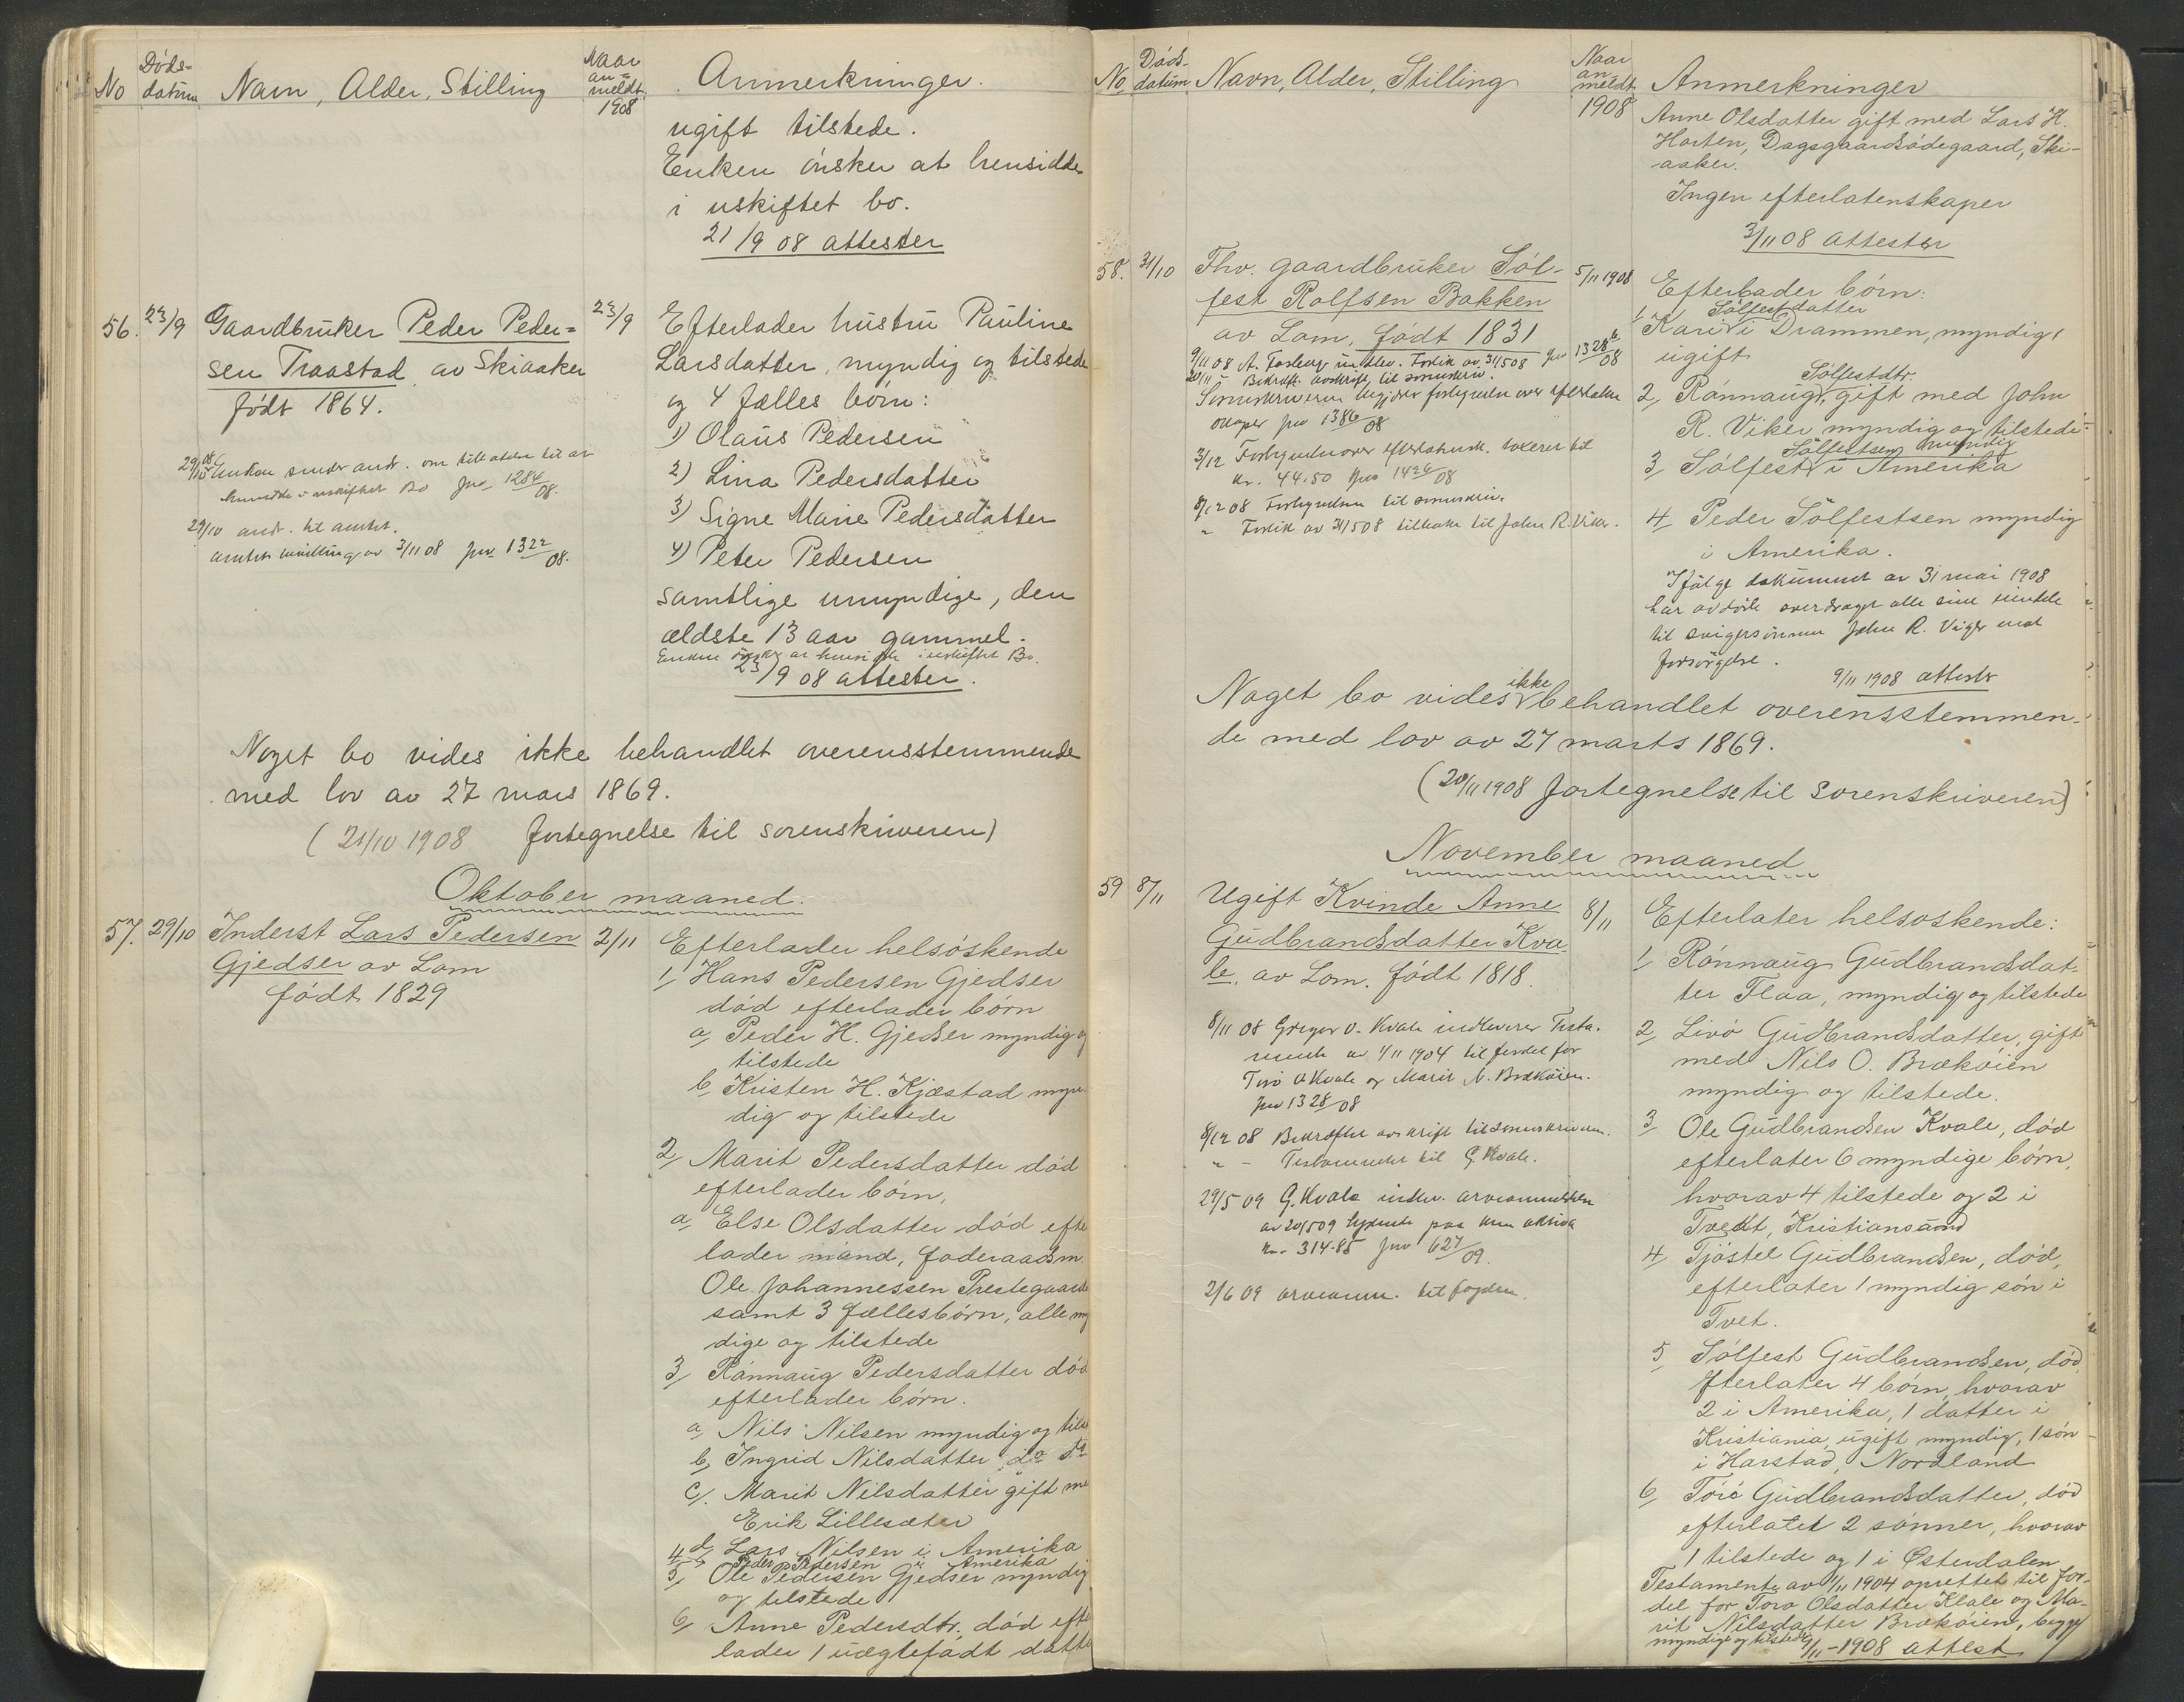 No
Døds-
datum
Navn, Alder, Stilling
Naar
an-
meldt
1908
Anmerkninger.
ugift tilstede.
Enken ønsker at hensidde
i uskiftet bo.
21/9 08 attester
56. 23/9 Gaardbruker Peder Peder=
sen Traastad av Skiaaker
født 1864.
29/10 08 Enken sender ands. om tilladelse til at
hensidde i uskiftet Bo Jno 1284/08.
29/10 ands. til amtet.
Amtets bevilling av 3/11 08 jno 1322/08.
23/9
Efterlader hustru Pauline
Larsdatter, myndig og tilstede
og 4 fælles børn:
1) Olaus Pedersen
2) Lina Pedersdatter
3) Signe Marie Pedersdatter
4) Peter Pedersen
samtlige umyndige, den
ældste 13 aar gammel.
Enken ønsker at hensidde i uskiftet Bo.
23/9 08 attester.
Noget bo vides ikke behandlet overensstemmende
med lov av 27 mars 1869.
(21/10 1908 fortegnelse til sorenskriveren)
Oktober maaned.
57. 29/10 Inderst Lars Pedersen
Gjedser av Lom
født 1829
2/11
Efterlader helsøskende
1, Hans Pedersen Gjedser
død efterlader børn
a, Peder H. Gjedser myndig og
tilstede
b, Kristen H. Kjæstad myn-
dig og tilstede
2, Marit Pedersdatter død
efterlader børn,
a, Else Olsdatter død efter
lader mand, føderaadsm.
Ole Johannessen Prestegaard
samt 3 fællesbørn, alle my
dige og tilstede
3, Rønnaug Pedersdatter død
efterlader børn.
a, Nils Nilsen myndig og tils
b, Ingrid Nilsdatter do do
c, Marit Nilsdatter gift me
Erik Lillesæter
d, Lars Nilsen i Amerika
4, Peder Pedersen i Amerika
5, Ole Pedersen Gjedser myndig
og tilstede
6, Anne Pedersdtr. død efter
lader 1 uægtefødt datter
No
Døds-
datum
Navn, Alder, Stilling
Naar
an-
meldt
1908
Anmerkninger
Anne Olsdatter gift med Lars H.
Harten, Dagsgaardsødegaard, Ski-
aaker.
Ingen efterlatenskaper
3/11 08 attester
58. 31/10 Fhv. gaardbruker Søl-
fest Rolfsen Bakken
av Lom, født 1831
9/11 08 A. Forberg innlev. Forlik av 31/5 08 jno 1328b/08
20/11 - Bekræft. avskrift til sorenskriv.
Sorenskriveren begjærer fortegnelse over efterlaten
skaper jno 1386/08
3/12 Fortegnelse over efterlatensk. takseret til
kr. 44.50 jno 1426/08
8/12 08 Fortegnelsen til sorenskriv.
" Forlik av 31/5 08 tilbake til John R. Viker.
5/11 1908
Efterlader børn:
1, Kari Sølfestdatter i Drammen, myndig,
ugift
2, Rønnaug Sølfestdtr. gift med John
R. Viker myndig og tilstede.
3, Sølfest Sølfestsen myndig i Amerika
4, Peder Sølfestsen myndig
i Amerika.
Ifølge dokument av 31 mai 1908
har avdøde overdraget alle sine eiendele
til svigersønnen John R. Viger mot
forsørgelse.
9/11 1908 attester
Noget bo vides ikke behandlet overensstemmen-
de med lov av 27 marts 1869.
(20/11 1908 fortegnelse til sorenskriveren)
November maaned
59 8/11 Ugift Kvinde Anne
Gudbrandsdatter Kva
le, av Lom, født 1818.
8/11 08 Greger O. Kvale indleverer Testa-
mente av 1/11 1904 til fordel for
Torø O Kvale og Marit N. Brækøien.
jno 1328/08
8/12 08 Bekræftet avskrift til sorenskriveren.
" - Testamentet til G. Kvale.
29/5 09 G. Kvale indlev. arveanmeldelse
av 20/5 09 lydende paa kun aktiva
kr. 314.85 jno 627/09.
2/6 09 arveanm. til fogden.
8/11
Efterlater helsøskende:
1, Rønnaug Gudbrandsdat-
ter Flaa, myndig og tilstede
2, Livø Gudbrandsdatter, gift
med Nils O. Brækøien
myndig og tilstede.
3, Ole Gudbrandsen Kvale, død
efterlater 6 myndige børn,
hvorav 4 tilstede og 2 i
Tvedt, Kristiansand
4, Tjøstel Gudbrandsen, død,
efterlater 1 myndig søn i
Tvet.
5, Sølfest Gudbrandsen, død
efterlater 4 børn, hvorav
2 i Amerika, 1 datter i
Kristiania, ugift myndig, 1 søn
i Harstad, Nordland
6, Torø Gudbrandsdatter, død
efterlatet 2 sønner, hvorav
1 tilstede og 1 i Østerdalen
Testamente av 1/11 1904 oprettet til for-
del for Torø Olsdatter Klale og Ma-
rit Nilsdatter Brækøien, begge
myndige og tilstede 9/11 - 1908 attest